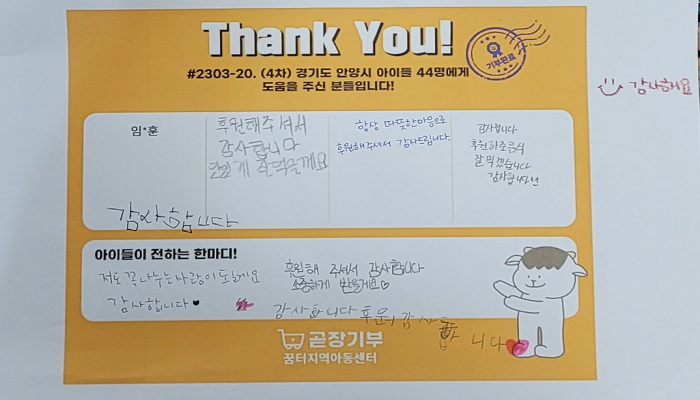 Thank You!
기부완료
#2303-20. (4차) 경기도 안양시 아이들 44명에게
도움을 주신 분들입니다!
감사해요
임*훈
후원해주셔서
감사합니다
맛있게 잘먹을께요
항상 따뜻한마음으로
후원해주셔서 감사드립니다.
감사합니다
후원해준음식
잘 먹겠습니다
감사합니다
감사합니다
아이들이 전하는 한마디!
저도 꼭 나누는사람이 될게요
감사합니다♥
후원해 주셔서 감사합니다
소중하게 받을게요♡
감사합니다 후원 감사
합 니다
곧장기부
꿈터지역아동센터